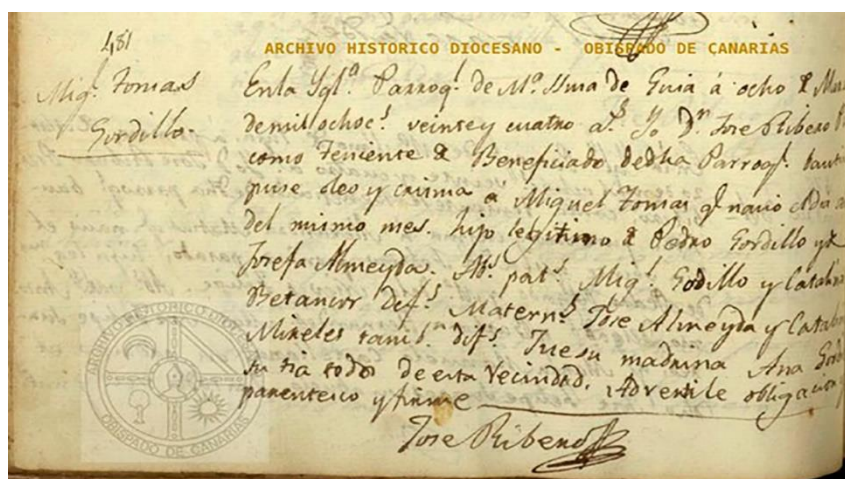 481
ARCHIVO HISTORICO DIOCESANO - OBISPADO DE CANARIAS
Migl. Tomas
Gordillo.
En la Yglª Parroql. de Mª Ssma de Guia á ocho
de mil ochocs. veinte y cuatro as. Yo Dn. Jose Ribero
como Teniente de Beneficiado de dha Parroql.
puse oleo y crisma a Miguel Tomas q. nacio el dia
del mismo mes. hijo legitimo de Pedro Gordillo y de
Josefa Almeyda. Abs. pats. Migl. Godillo y Catalina
Betancor difs. Materns. Jose Almeyda y Catalina
Mireles tambn. difs. Fue su madrina Ana
su tia todos de esta Vecindad. Advertile obligacion
parentesco y firme
Jose Ribero
ARCHIVO HISTORICO DIOCESANO
OBISPADO DE CANARIAS